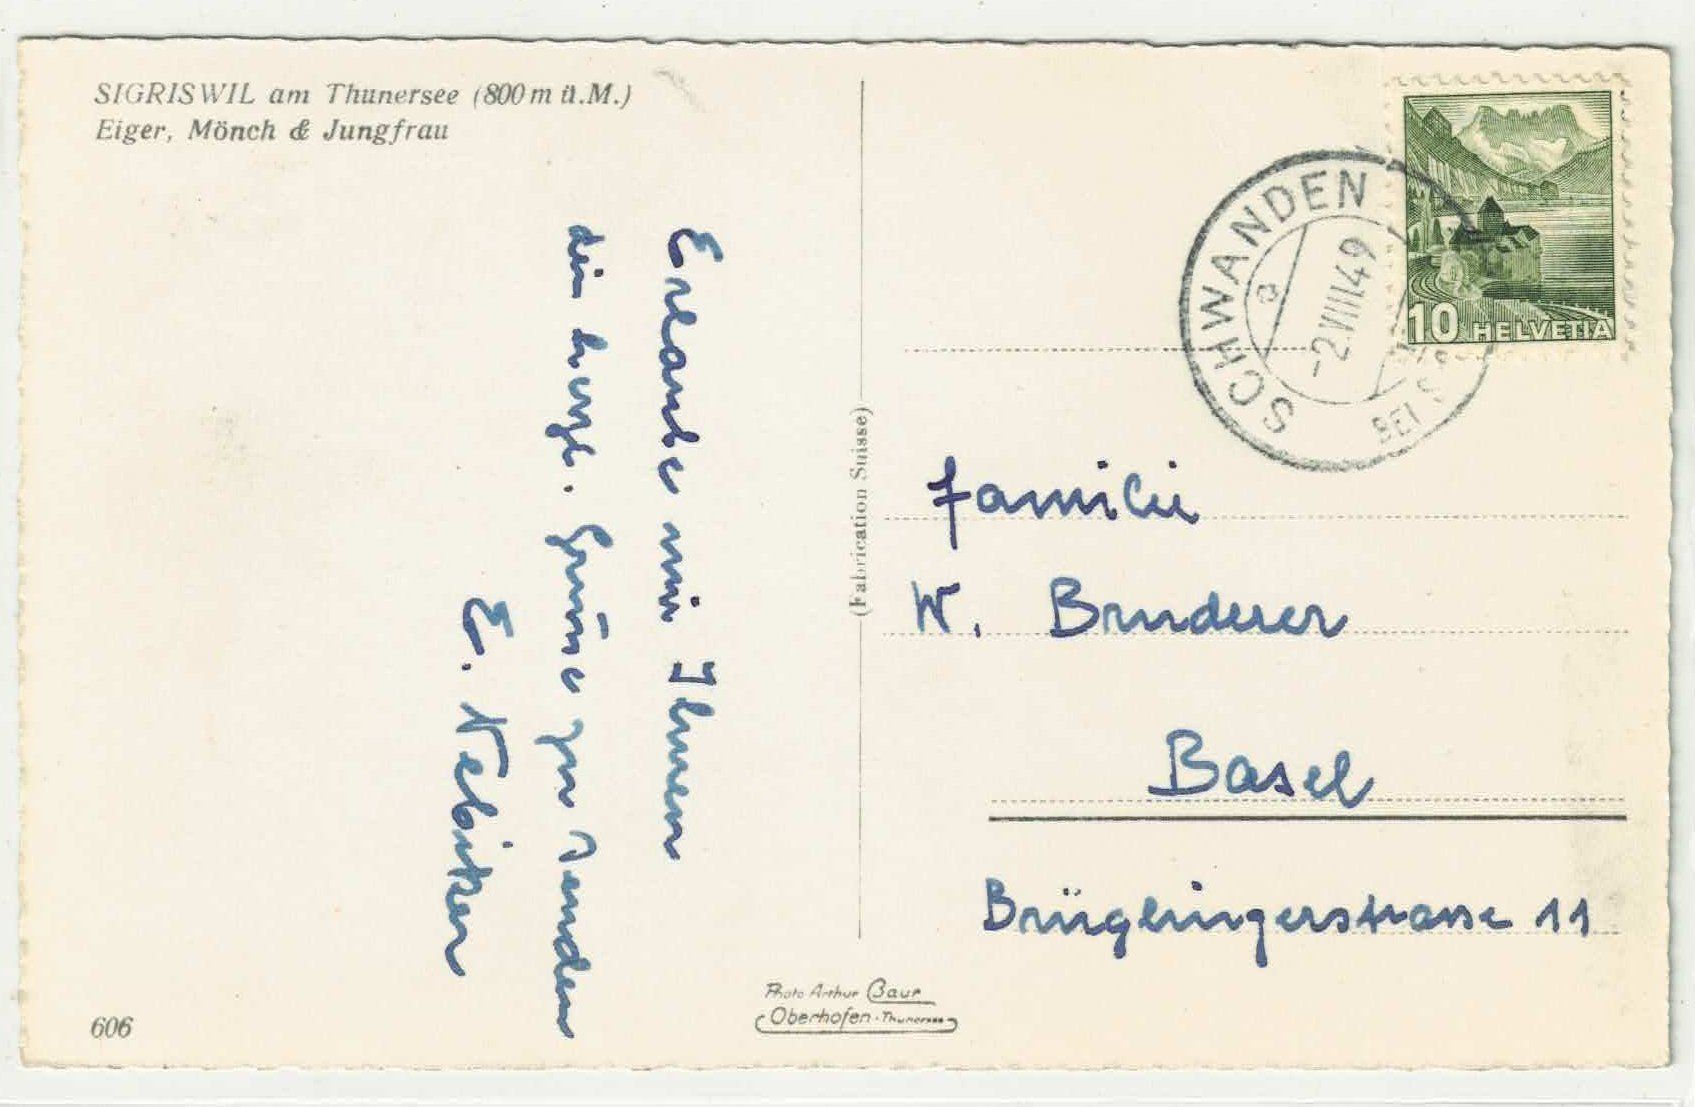 SIGRISWIL am Thunersee (800 m ü.M.)
Eiger, Mönch & Jungfrau
Erlaube mir Ihnen
die herzl. Grüsse zu senden
E. Nebiker
606
(Fabrication Suisse)
Photo Arthur Baur
Oberhofen-Thunersee
SCHWANDEN
-2.VIII.49
BEI S
10 HELVETIA
Familie
W. Bruderer
Basel
Brüglingerstrasse 11